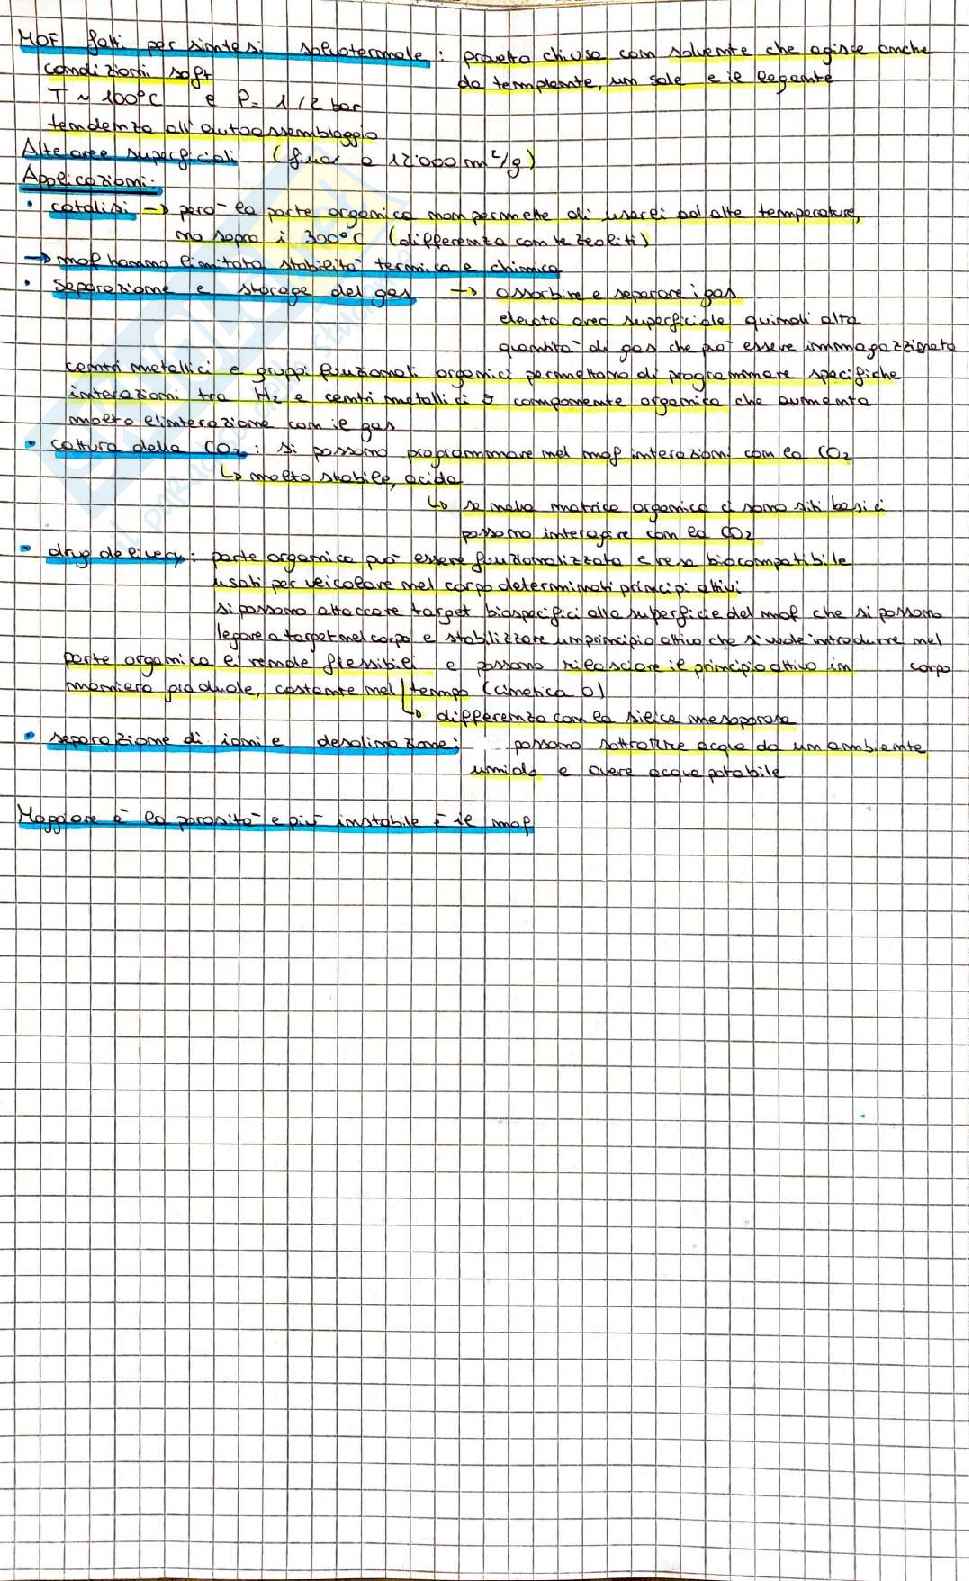 MOF fatti per sintesi solvotermale : provetta chiusa con solvente che agisce anche
condizioni soft da templante, un sale e il legante
T ~ 100°C e P= 1/2 bar
tendenza all'autoassemblaggio
Alte aree superficiali (fino a 12'000 m²/g)
Applicazioni:
• catalisi → però la parte organica non permette di usarli ad alte temperature,
ma sopra i 300°C (differenza con le zeoliti)
→ mof hanno limitata stabilità termica e chimica
• separazione e storage del gas → assorbire e separare i gas
elevata area superficiale quindi alta
quantità di gas che può essere immagazzinata
centri metallici e gruppi funzionali organici permettono di programmare specifiche
interazioni tra H₂ e centri metallici o componente organica che aumenta
molto l'interazione con il gas
• cattura della CO₂ : si possono programmare nel mof interazioni con la CO₂
↳ molto stabile, acida
↳ se nella matrice organica ci sono siti basici
possono interagire con la CO₂
• drug delivery: parte organica può essere funzionalizzata e resa biocompatibile
usati per veicolare nel corpo determinati principi attivi
si possono attaccare target biospecifici alla superficie del mof che si possono
legare a target nel corpo e stabilizzare un principio attivo che si vuole introdurre nel
parte organica li rende flessibili e possono rilasciare il principio attivo in corpo
maniera graduale, costante nel tempo (cinetica 0)
↳ differenza con la silice mesoporosa
• separazione di ioni e desalinazione: possono sottrarre acqua da un ambiente
umido e avere acqua potabile
Maggiore è la porosità e più instabile è il mof